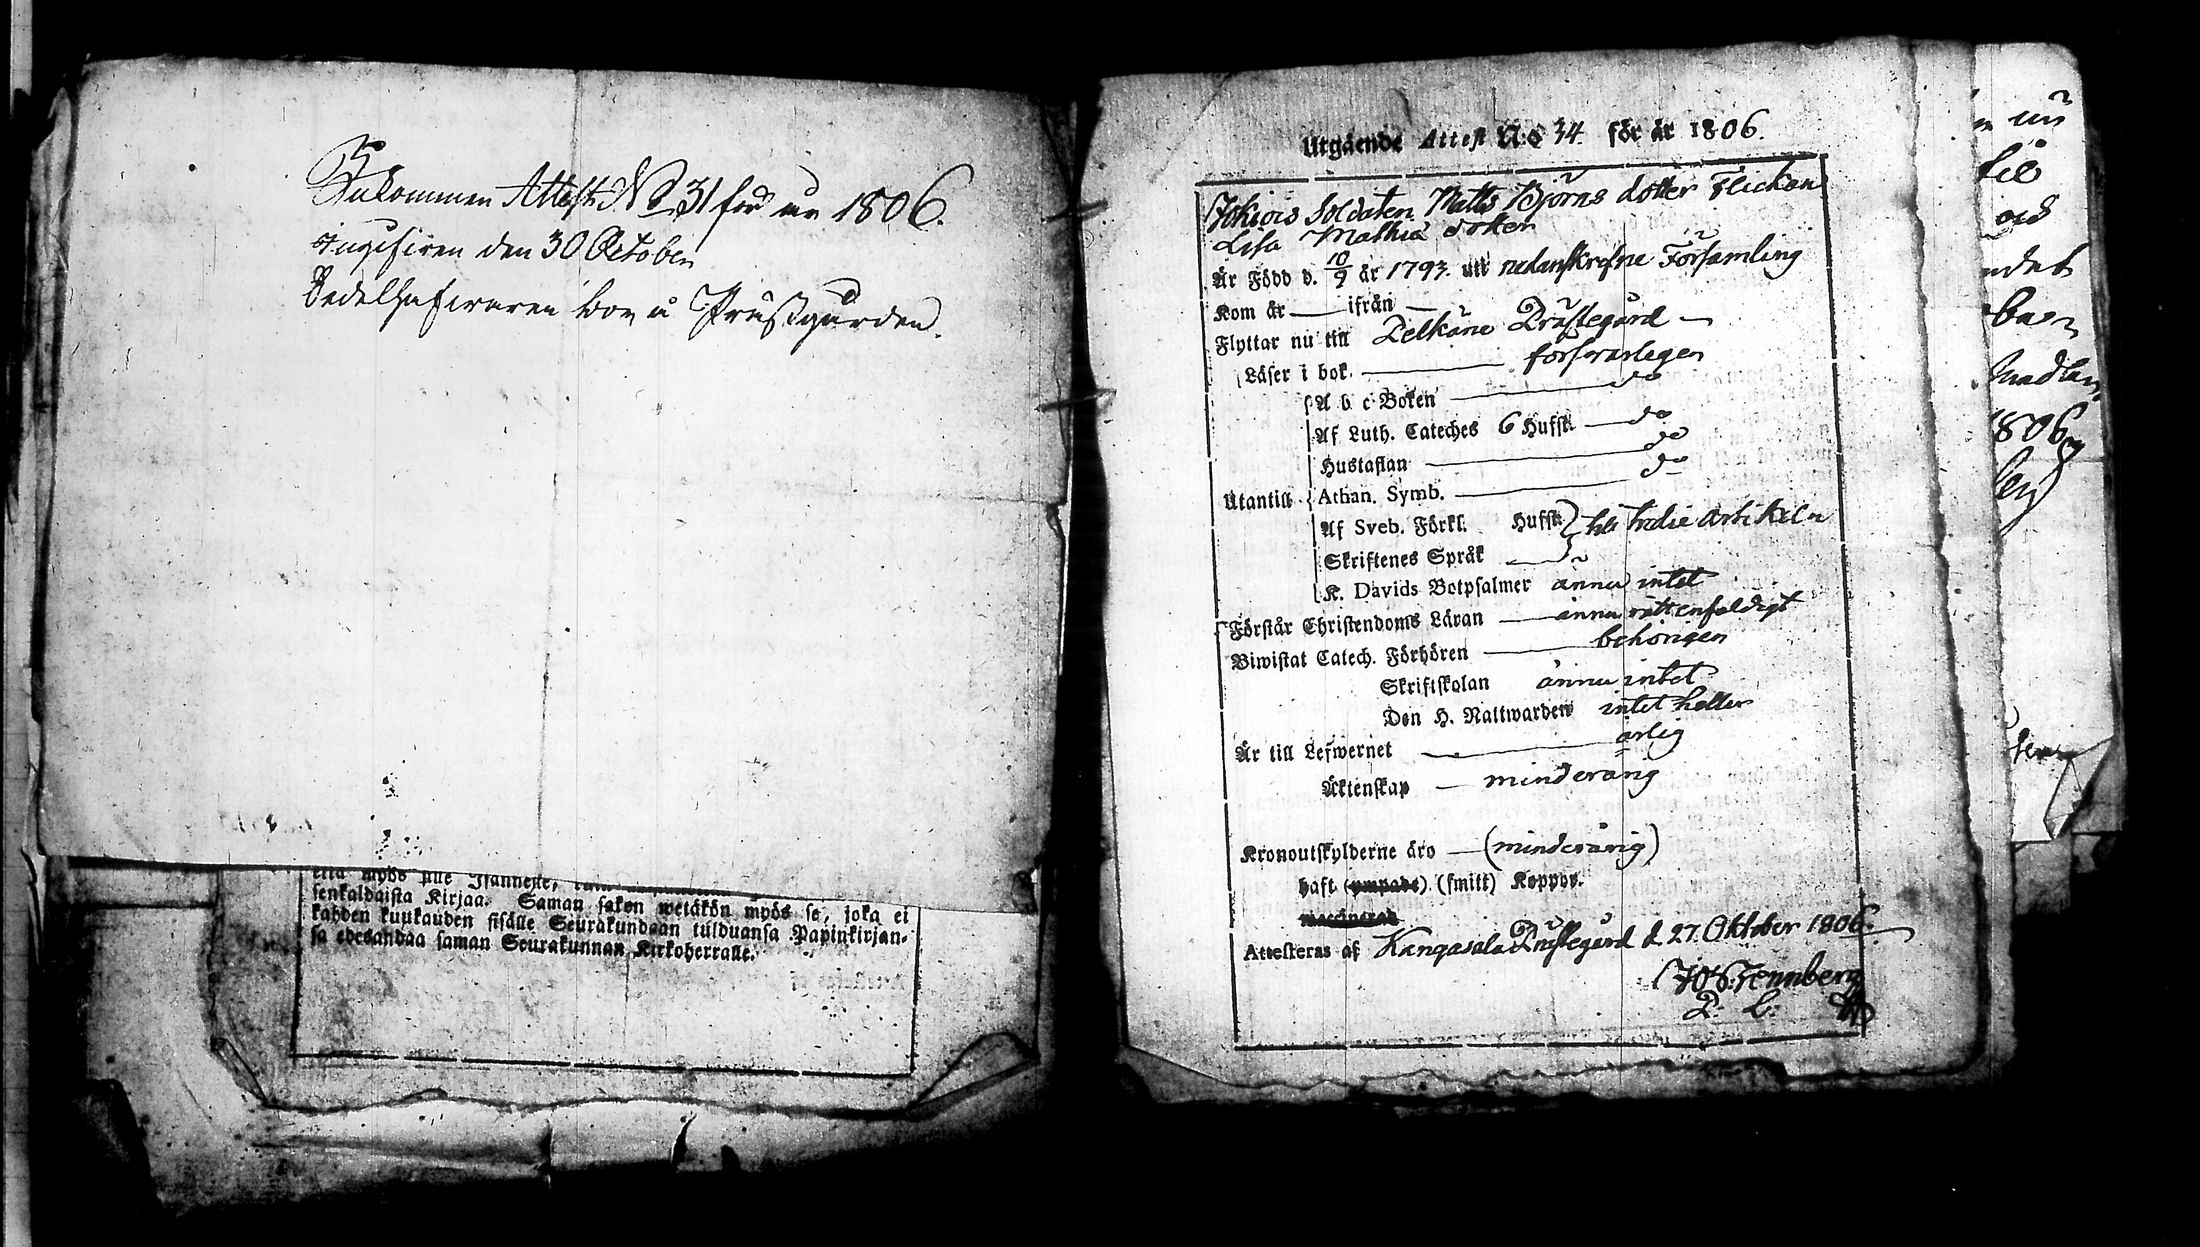 Inkommen Attest No 31 for år 1806.
ingifven den 30 October
Bedelhafwaren bor å Prästgården.
senkaldaista Kirjaa. Saman sakon wetäkön myös se, joka ei
kahden kuukauden sisälle Seurakundaan tulduansa Papinkirjan-
sa edesandaa saman Seurakunnan Kirkoherralle.
Utgående Attest N:o 34. för år 1806.
Jokiois Soldaten Matts Björns dotter Flickan
Lisa Mathiæ dotter
Är Född d. 10/9 år 1793. uti nedanskrefne Församling
Kom år — ifrån —
Flyttar nu till Pelkäne Prästegård —
Läser i bok. — försvarlegen
A b c Boken — do
Af Luth. Cateches 6 Hufst. — do
Hustaflan — do
Utantill Athan. Symb. — do
Af Sveb. Förkl. Hufst. til tredie Artikeln
Skriftenes Språk —
K. Davids Botpsalmer ännu intet
Förstår Christendoms Läran — ännu rätt enfaldigt
Biwistat Catech. Förhören — behörigen
Skriftskolan ännu intet
Den H. Nattwarden intet heller
Är till Lefwernet — ärlig
Äktenskap — minderårig
Kronoutskylderne äro — (minderårig)
haft (ympade) (smitt) Koppor.
Attesteras af Kangasala Prästegård d. 27. Oktober 1806.
1806